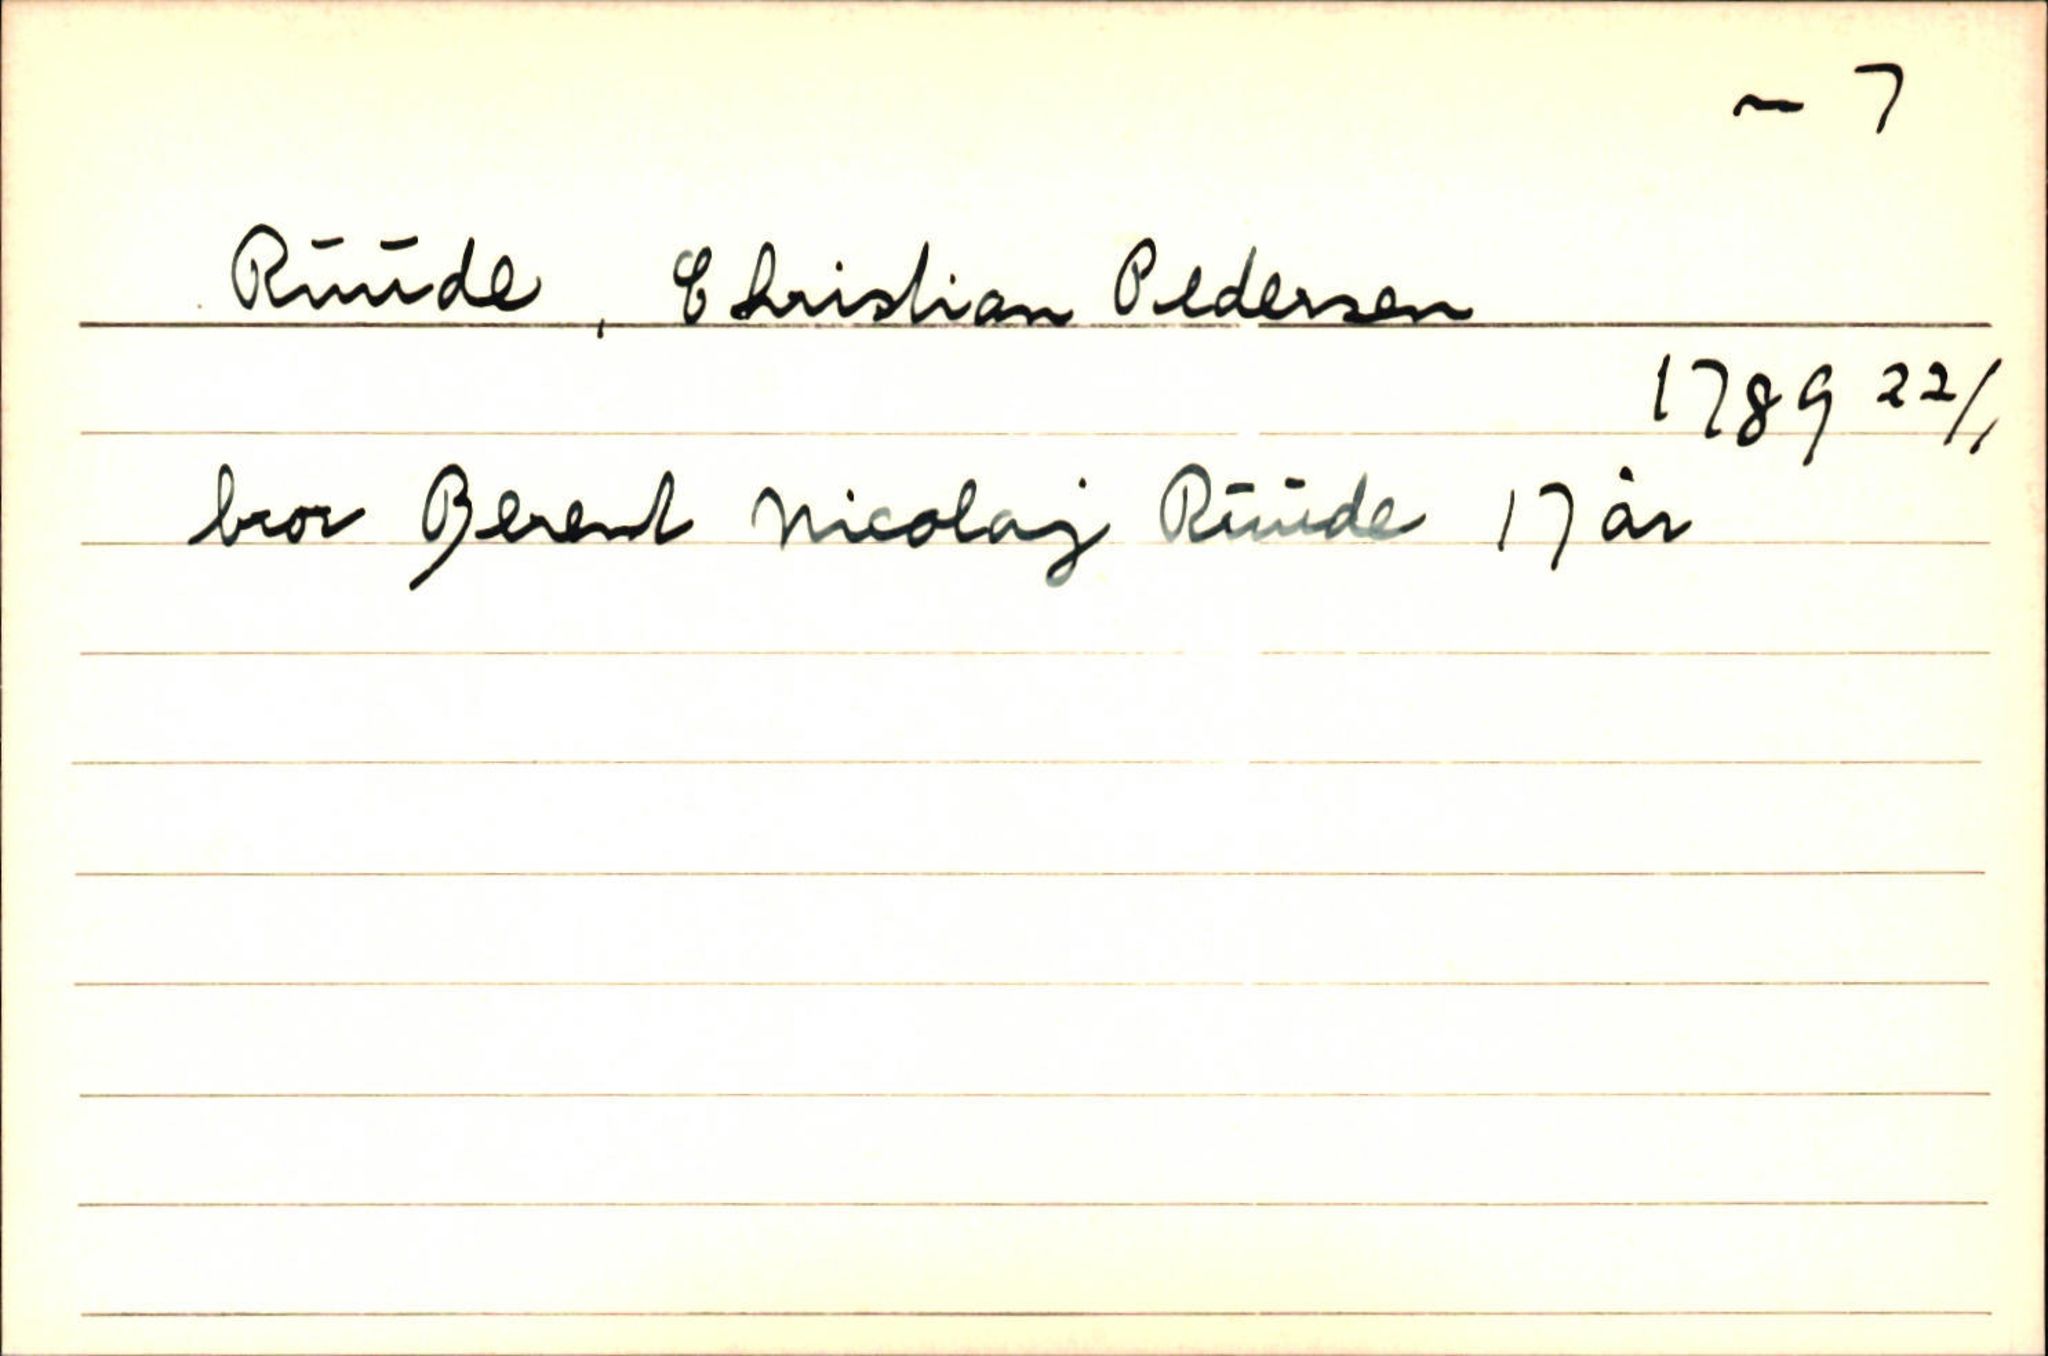 ~ 7
Rūūde, Christian Pedersen
1789 22/1
bror Berent Nicolaj Rūūde 17 år